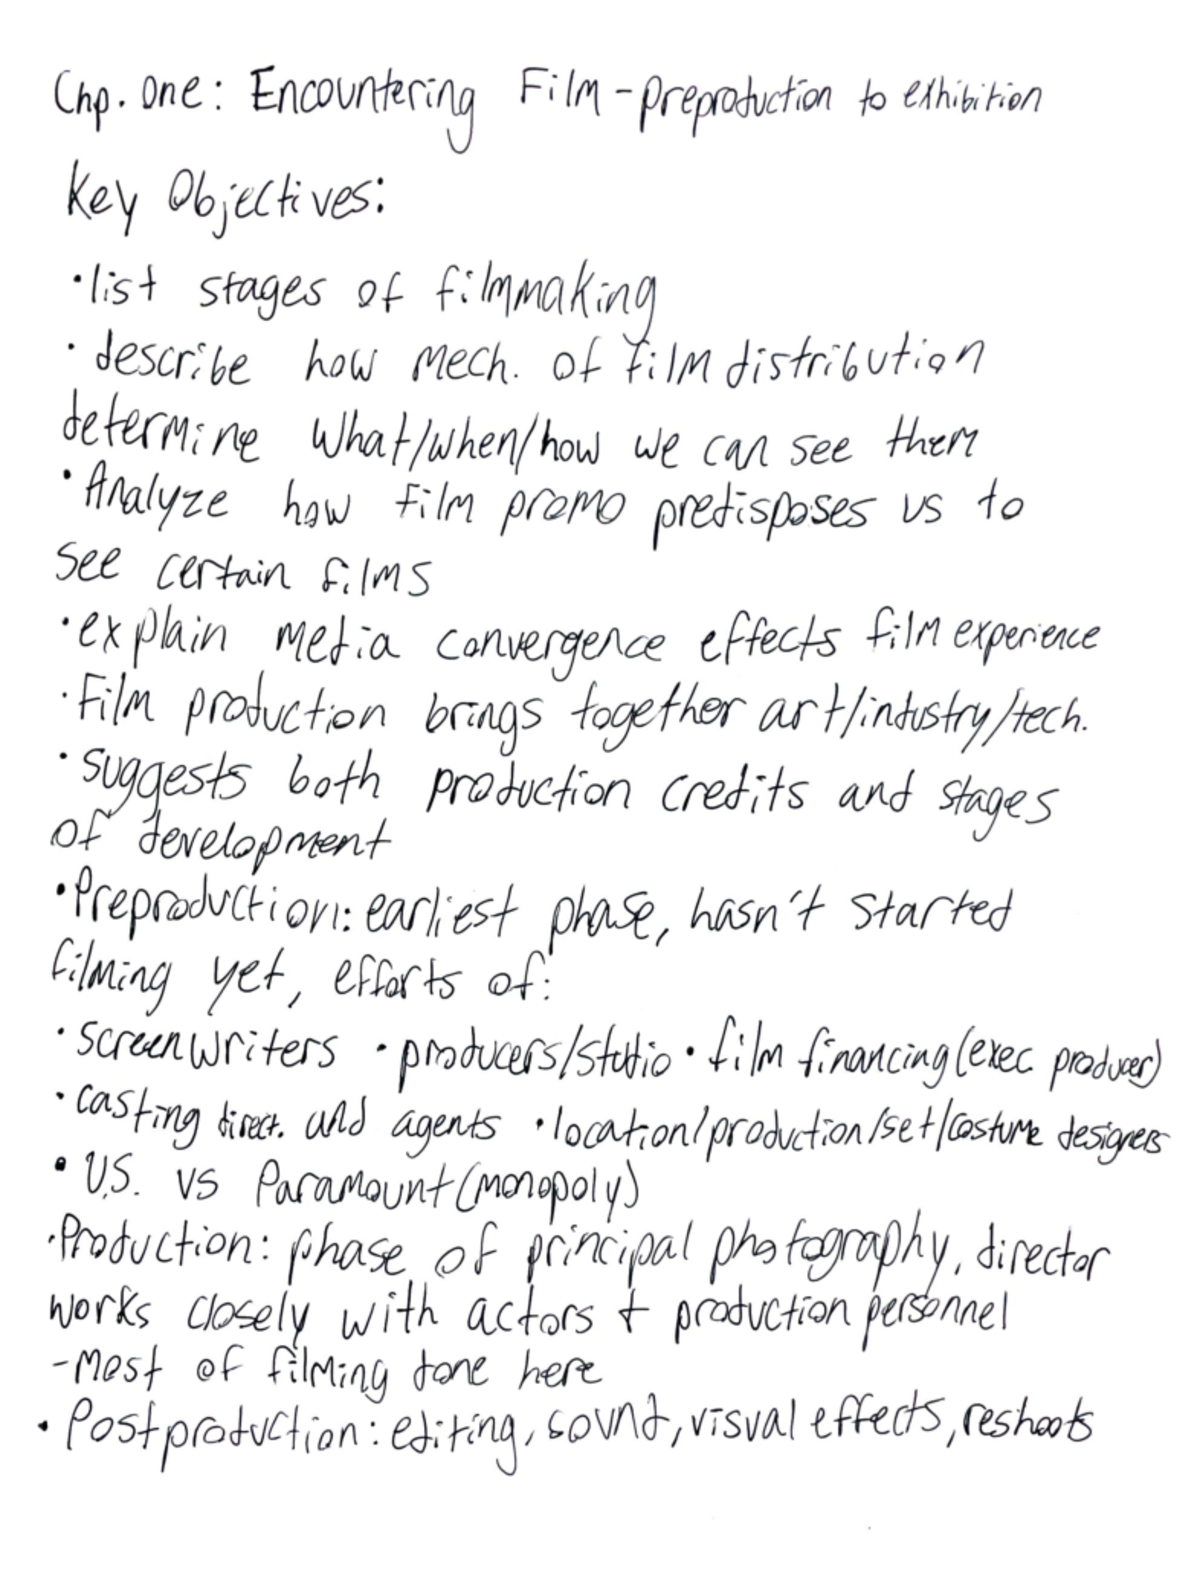 Chp. One: Encountering Film - preproduction to exhibition
Key Objectives:
• list stages of filmmaking
• describe how mech. of film distribution
determine what/when/how we can see them
• Analyze how film promo predisposes us to
see certain films
• explain media convergence effects film experience
• Film production brings together art/industry/tech.
• suggests both production credits and stages
of development
• Preproduction: earliest phase, hasn't started
filming yet, efforts of:
• screenwriters • producers/studio • film financing (exec producer)
• casting direct. and agents • location/production/set/costume designers
• U.S. vs Paramount (monopoly)
• Production: phase of principal photography, director
works closely with actors + production personnel
- most of filming done here
• Postproduction: editing, sound, visual effects, reshoots